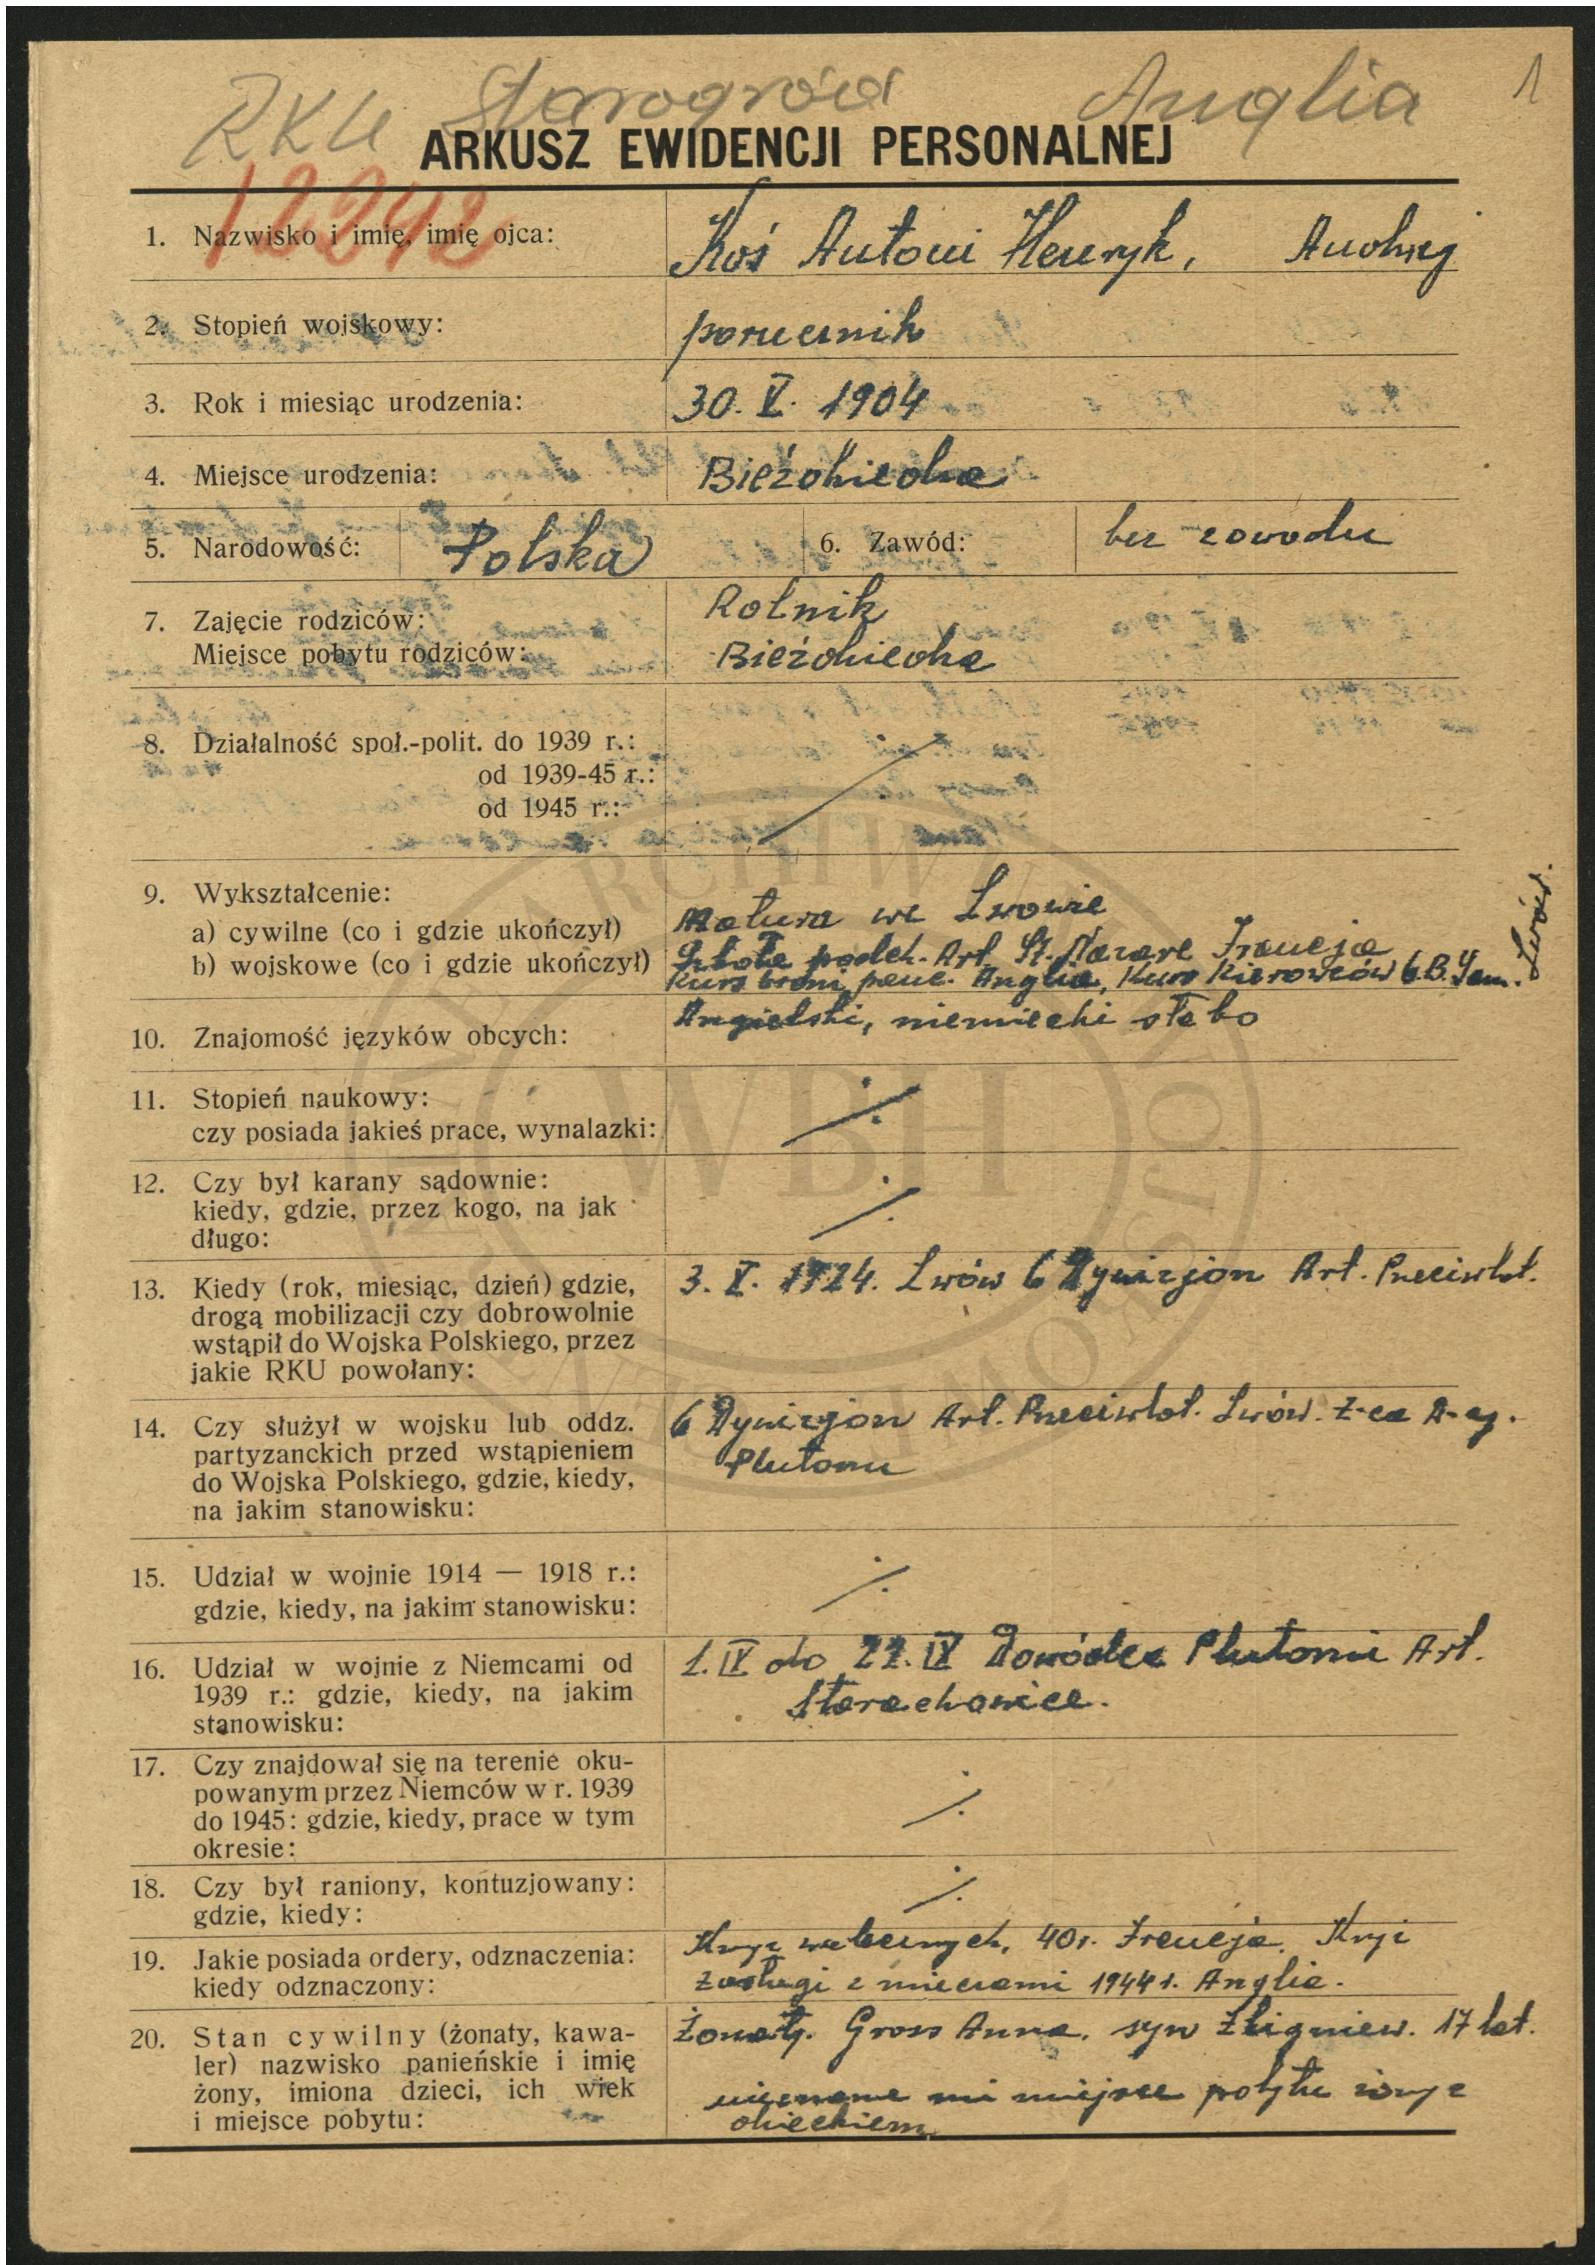 RKU Starogród Anglia 1
ARKUSZ EWIDENCJI PERSONALNEJ
12242
1. Nazwisko i imię, imię ojca: Koś Antoni Henryk, Andrzej
2. Stopień wojskowy: porucznik
3. Rok i miesiąc urodzenia: 30. V. 1904
4. Miejsce urodzenia:
5. Narodowość: Polska 6. Zawód: bez zawodu
7. Zajęcie rodziców: Rolnik
Miejsce pobytu rodziców:
8. Działalność społ.-polit. do 1939 r.:
od 1939-45 r.:
od 1945 r.:
9. Wykształcenie:
a) cywilne (co i gdzie ukończył) Matura we Lwowie
b) wojskowe (co i gdzie ukończył) Szkoła podch. Art. St. Nazare Francja
Kurs broni panc. Anglia, Kurs Kierowców 6.B. Sam. Lwów.
10. Znajomość języków obcych: Angielski, niemiecki słabo
11. Stopień naukowy:
czy posiada jakieś prace, wynalazki:
12. Czy był karany sądownie:
kiedy, gdzie, przez kogo, na jak
długo:
13. Kiedy (rok, miesiąc, dzień) gdzie, 3. X. 1924. Lwów 6 Dywizjon Art. Przeciwlot.
drogą mobilizacji czy dobrowolnie
wstąpił do Wojska Polskiego, przez
jakie RKU powołany:
14. Czy służył w wojsku lub oddz. 6 Dywizjon Art. Przeciwlot. Lwów. Z-ca D-cy.
partyzanckich przed wstąpieniem Plutonu
do Wojska Polskiego, gdzie, kiedy,
na jakim stanowisku:
15. Udział w wojnie 1914 — 1918 r.:
gdzie, kiedy, na jakim stanowisku:
16. Udział w wojnie z Niemcami od 1. IX do 22. IX Dowódca Plutonu Art.
1939 r.: gdzie, kiedy, na jakim Starachowice.
stanowisku:
17. Czy znajdował się na terenie oku-
powanym przez Niemców w r. 1939
do 1945: gdzie, kiedy, prace w tym
okresie:
18. Czy był raniony, kontuzjowany:
gdzie, kiedy:
19. Jakie posiada ordery, odznaczenia: Krzyż walecznych, 40r. Francja. Krzyż
kiedy odznaczony: zasługi z mieczami 1944 r. Anglia.
20. Stan cywilny (żonaty, kawa- Żonaty. Gross Anna. syn Zbigniew. 17 lat.
ler) nazwisko panieńskie i imię
żony, imiona dzieci, ich wiek nieznane mi miejsce pobytu żony z
i miejsce pobytu: dzieckiem
WBH